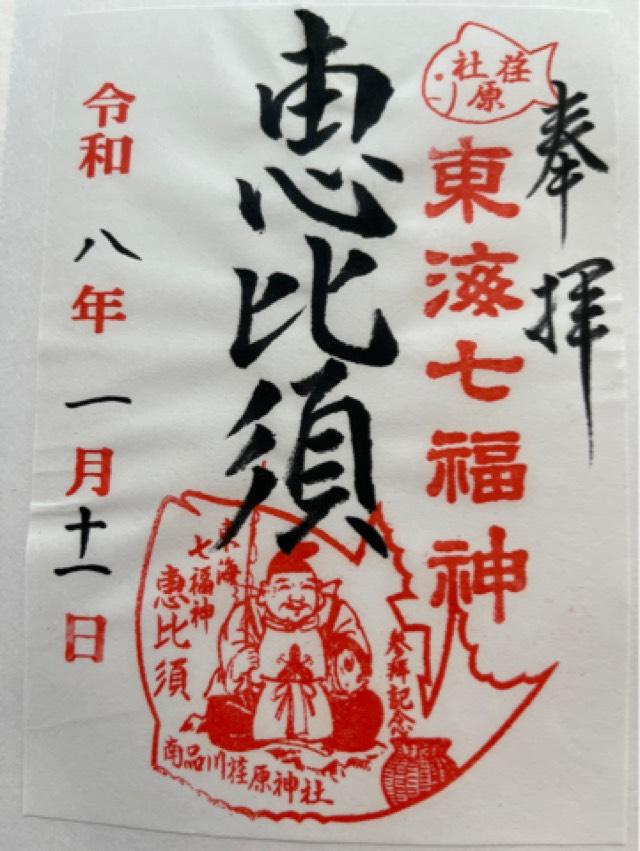 奉拝
荏原社
東海七福神
恵比須
東海
七福神
恵比須
参拝記念
南品川荏原神社
令和八年一月十一日